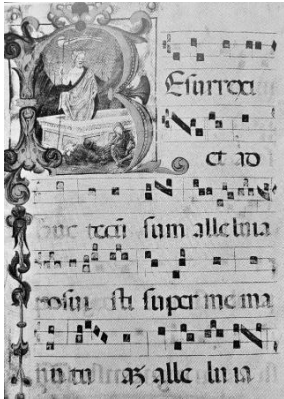 Resurrexi
et ad
huc tecum sum alleluia
posui sti super me ma
num tu as alle lu ia